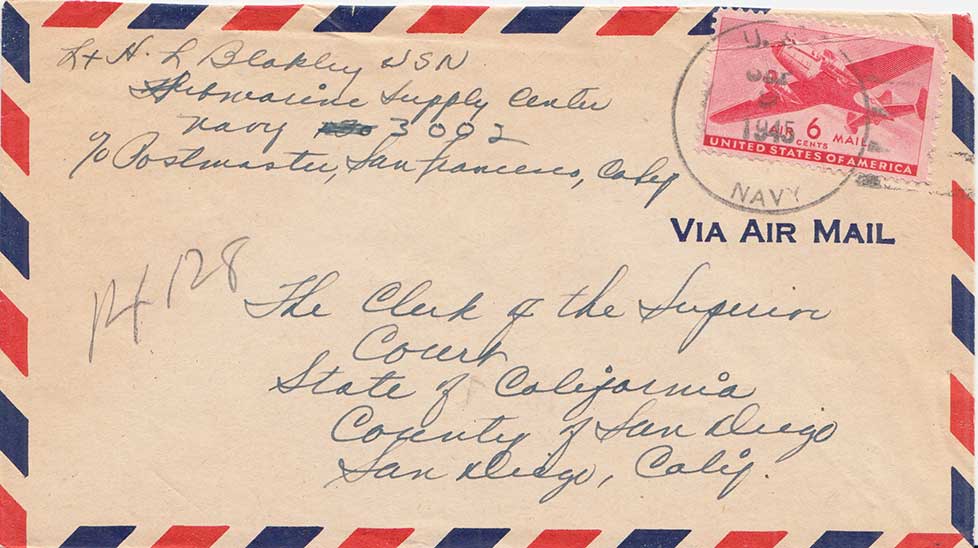 Lt H. L Blakley USN
Submarine Supply Center
Navy 3002
c/o Postmaster, San Francisco, Calif
U.S.
1945
NAVY
AIR 6 MAIL
CENTS
UNITED STATES OF AMERICA
VIA AIR MAIL
128
The Clerk of the Superior
Court
State of California
County of San Diego
San Diego, Calif.